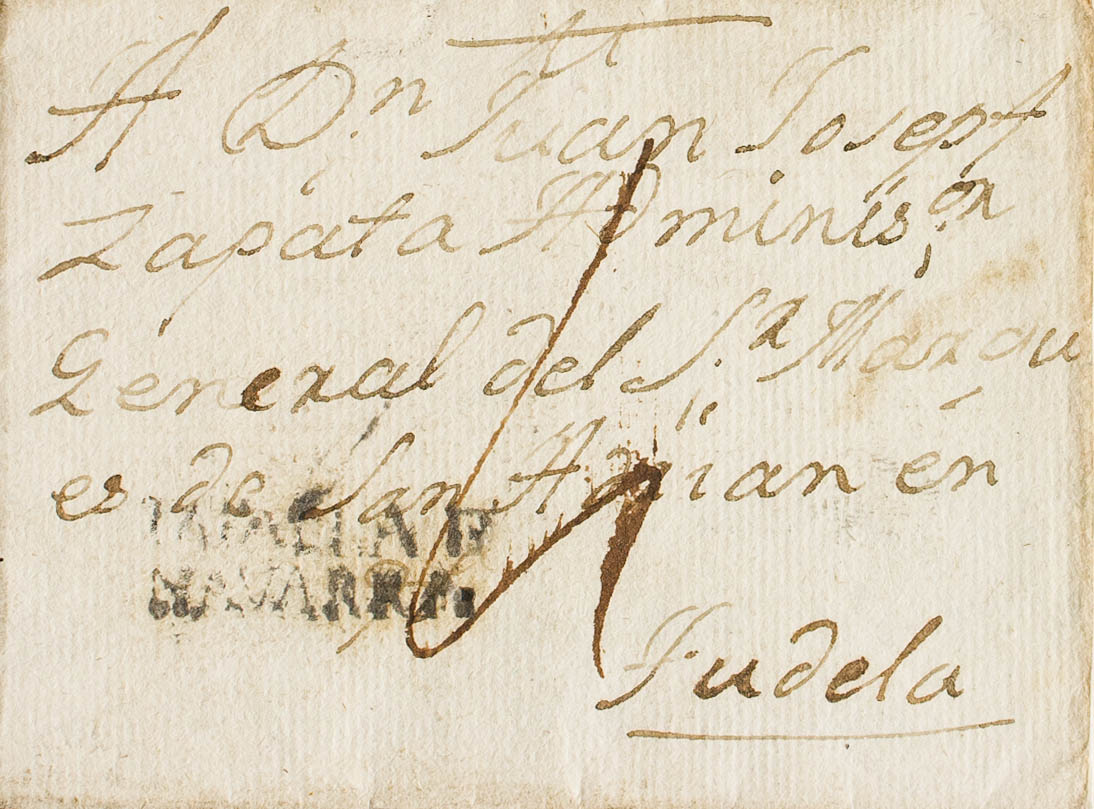 A D.n Juan Josepf
Zapata Adminis.or
General del S.r Marqu
es de San Adrian en
NAVARRA.
Tudela